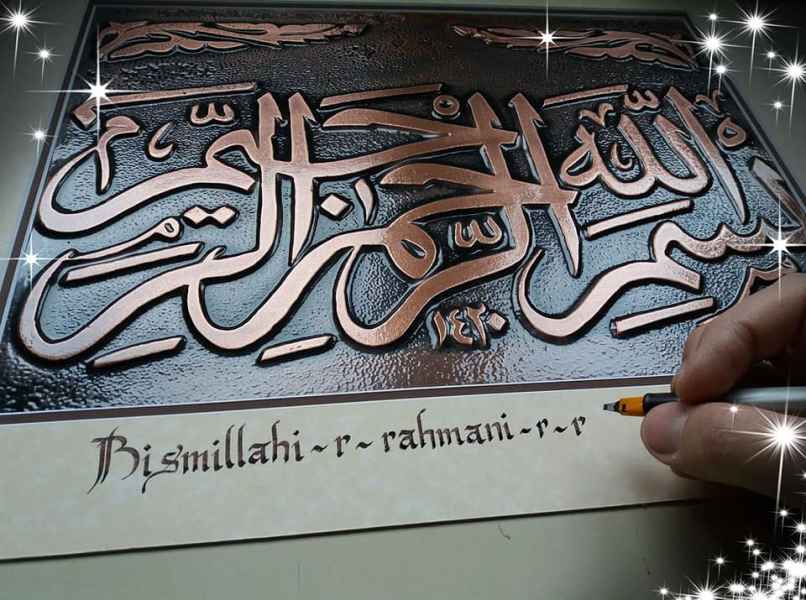 بسم الله الرحمن الرحيم
١٤٢٠
Bismillahi~r~rahmani~r~r